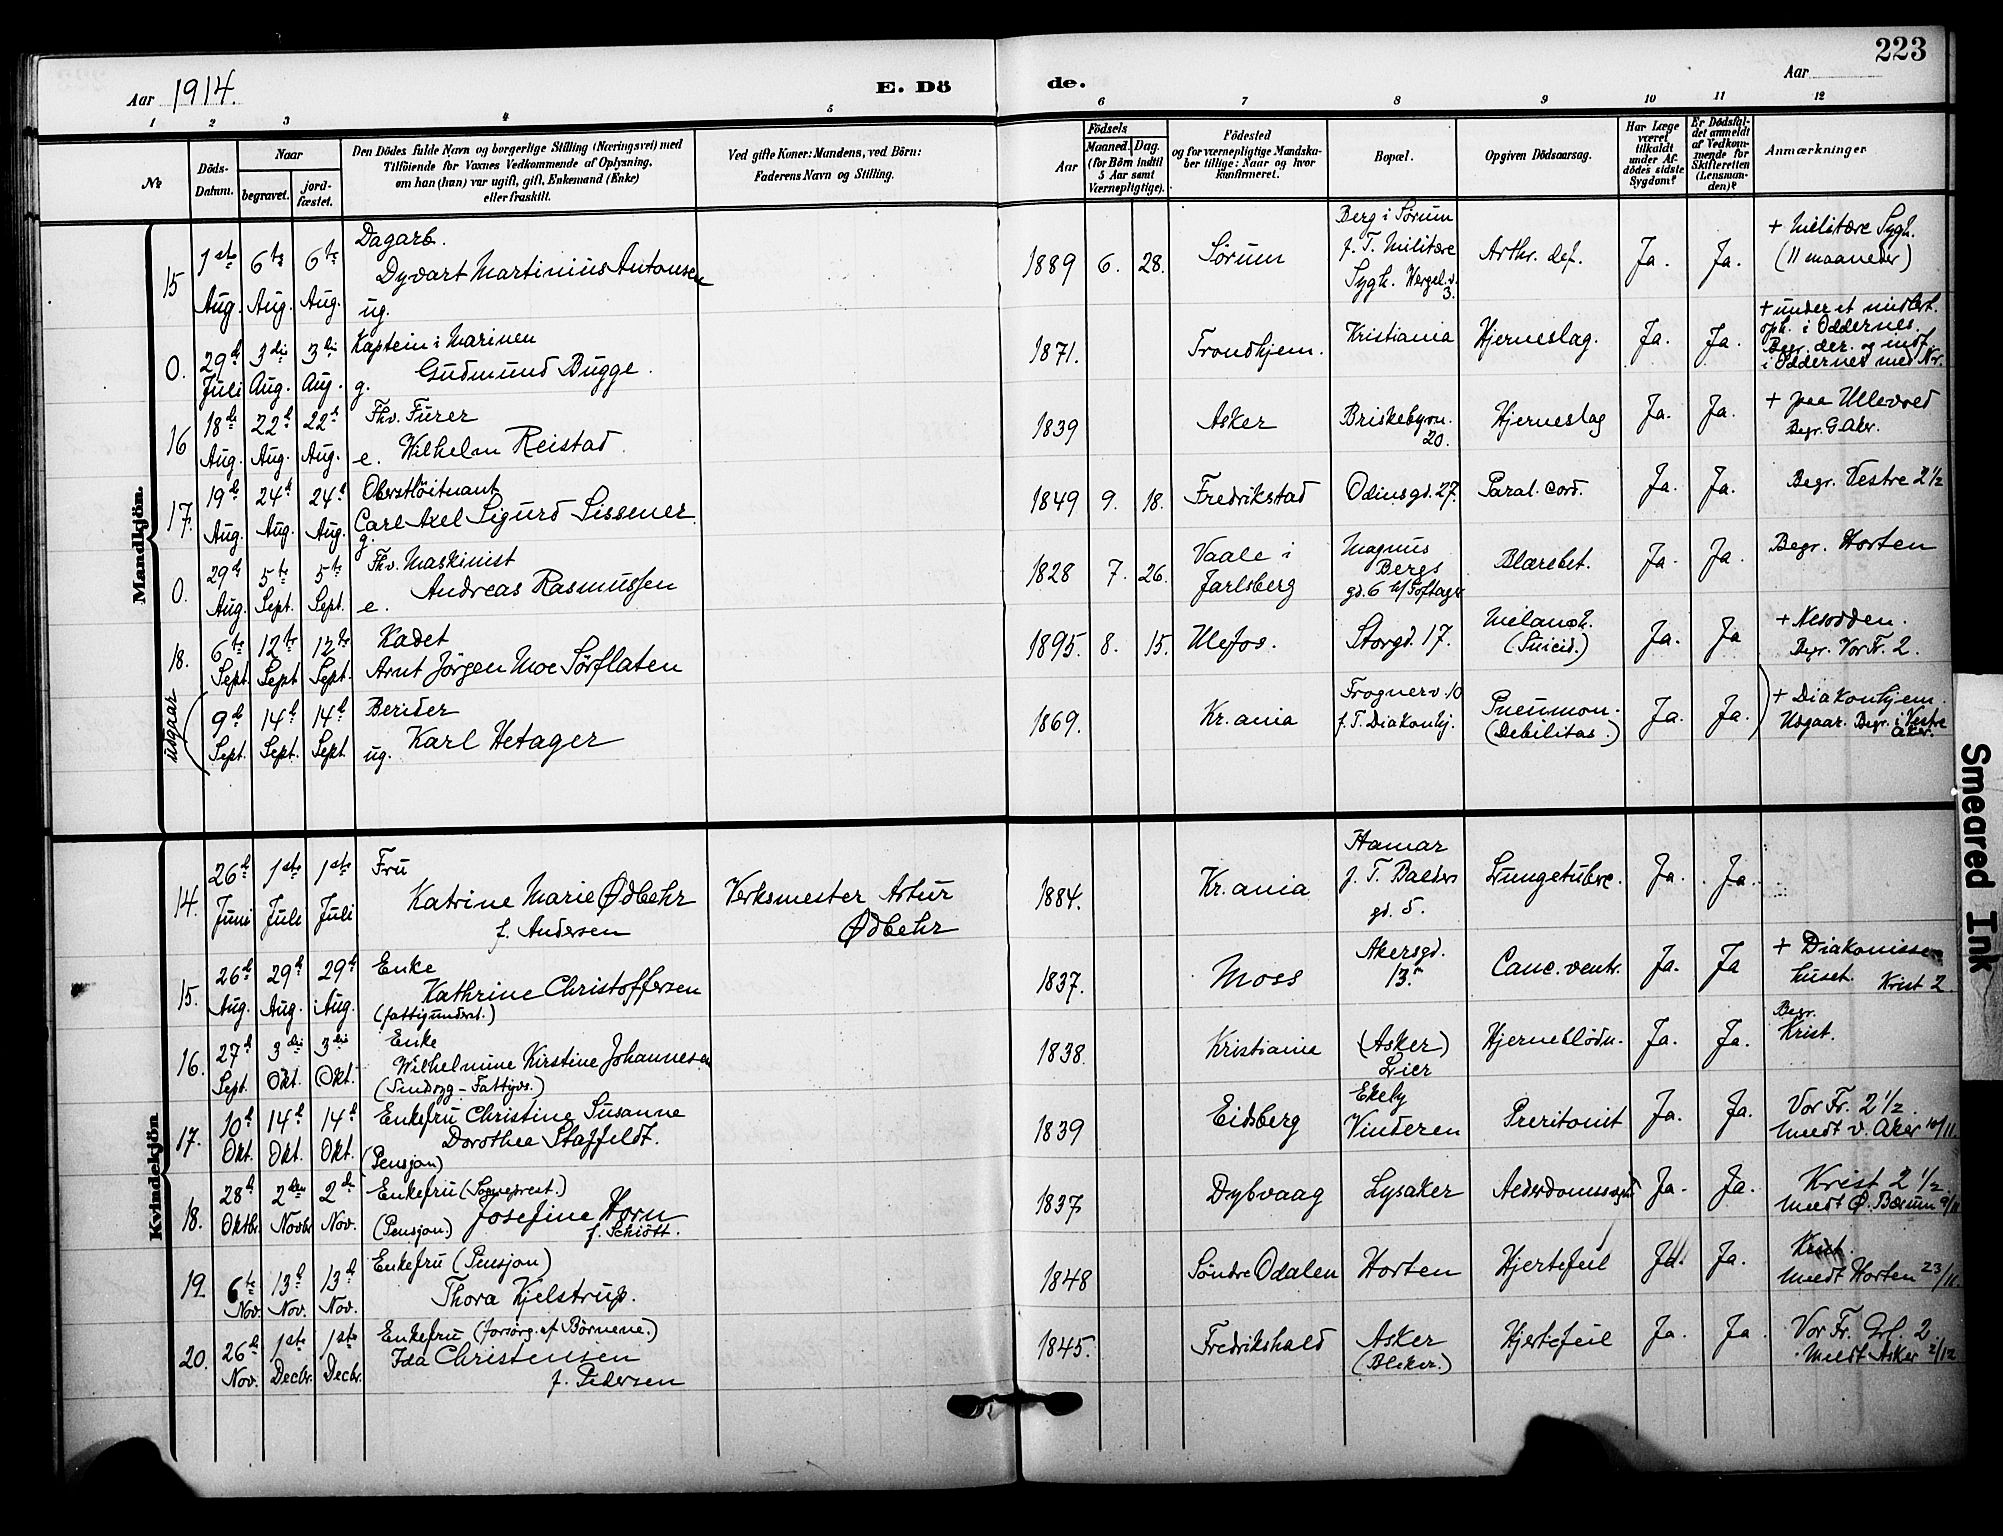 223
Aar 1914.
E. Dö
de.
Aar
1 2 3 4 5 6 7 8 9 10 11 12
№
Döds-
Datum.
Naar
begravet.
jord-
fæstet.
Den Dödes fulde Navn og borgerlige Stilling (Næringsvei) med
Tilföiende for Voxnes Vedkommende af Oplysning,
om han (hun) var ugift, gift, Enkemand (Enke)
eller fraskilt.
Ved gifte Koner: Mandens, ved Börn:
Faderens Navn og Stilling.
Födsels
Aar
Maaned. Dag.
(for Börn indtil
5 Aar samt
Værnepligtige).
Födested
og for værnepligtige Mandska-
ber tillige: Naar og hvor
konfirmeret.
Bopæl.
Opgiven Dödsaarsag.
Har Læge
været
tilkaldt
under Af-
dödes sidste
Sygdom?
Er Dödsfal-
det anmeldt
af Vedkom-
mende for
Skifteretten
(Lensman-
den)?
Anmærkninger
Mandkjön.
15 1ste Aug. 6te Aug. 6te Aug.
Dagarb.
Dyvart Martinius Antonsen
ug.
1889 6. 28. Sørum
Berg i Sørum
f. T. Militære
Sygh. Wergel.v.
3.
Arthr. def. Ja. Ja.
+ Militære Sygh.
(11 maaneder)
0. 29d Juli 3die Aug. 3die Aug.
Kaptein i Marinen
Gudmund Bugge.
g.
1871. Trondhjem. Kristiania Hjerneslag. Ja. Ja.
+ under et midlert.
oph. i Oddernes.
Begr. der. og indf.
i Oddernes med Nr.
16 18de Aug. 22d Aug. 22d Aug.
Fhv. Furer
e. Wilhelm Reistad.
1839 Asker Briskebyvn.
20.
Hjerneslag Ja. Ja.
+ paa Ullevold
Begr. G. Aker.
17. 19d Aug. 24d Aug. 24d Aug.
Oberstløitnant
Carl Axel Sigurd Sissener
g.
1849 9. 18. Fredrikstad Odinsgd. 27. Paral. cord. Ja. Ja. Begr. Vestre 2 ½
0. 29d Aug. 5te Sept. 5te Sept.
Fhv. Maskinist
Andreas Rasmussen
e.
1828 7. 26. Vaale i
Jarlsberg
Magnus
Bergs
gd. 6
Blærebet. Ja. Ja. Begr. Horten
18. 6te Sept. 12te Sept. 12te Sept.
Kadet
Arnt Jörgen Moe Sörflaten
1895. 8. 15. Ulefos. Storgd. 17. Melanch.
(Suicid.)
Ja. Ja
+ Nesodden.
Begr. Vor Fr. 2.
utgaar
9d Sept. 14d Sept. 14d Sept.
Berider
Karl Hetager
ug.
1869. Kr.ania Frognerv. 10
f. T. Diakonhj.
Pneumon.
(Debilitas.)
Ja. Ja.
+ Diakonhjem.
Udgaar. Begr. i Vestre
Aker.
Kvindekjön
14. 26d Juni 1ste Juli 1ste Juli
Fru
Katrine Marie Ødbehr
f. Andersen
Verksmester Artur
Ødbehr
1884. Kr.ania
Hamar
f. T. Balders
gd. 5.
Lungetubrc. Ja. Ja.
15. 26d Aug. 29d Aug. 29d Aug.
Enke
Kathrine Christoffersen
(fattigunderst.)
1837. Moss Akersgd.
13.
Canc. ventr. Ja. Ja
+ Diakonisse-
huset. Krist 2.
16. 27d Sept. 3die Okt. 3die Okt.
Enke
Wilhelmine Kirstine Johannesen
(Sindsyg - Fattigvs.)
1838. Kristiania (Asker)
Lier
Hjerneblödn. Ja. Ja.
Begr.
Krist.
17. 10d Okt. 14d Okt. 14d Okt.
Enkefru Christine Susanne
Dorothea Staffeldt.
(Pensjon)
1839 Eidsberg Ekely
Vinderen
Preritonit Ja. Ja.
Vor Fr. 2 ½.
Meldt v. Aker 10/11.
18. 28d Oktbr. 2den Novbr. 2d Nov.
Enkefru (Sogneprest.)
(Pensjon.) Josefine Horn
f. Schiött.
1837 Dybvaag Lysaker Alderdomssvagh. Ja. Ja.
Krist 2 ½.
Meldt Ø. Bærum 9/11
19. 6te Nov. 13d Nov. 13d Nov.
Enkefru (Pensjon)
Thora Kjelstrup.
1848 Söndre Odalen Horten Hjertefeil Ja. Ja.
Krist.
Meldt Horten 23/11.
20. 26d Nov. 1ste Decbr. 1ste Decbr.
Enkefru (forsørg. af Börnene.)
Ida Christensen
f. Pedersen
1845. Fredrikshald Asker
(Bleker.)
Hjertefeil Ja. Ja
Vor Fr. Grl. 2.
Meldt Asker 2/12
Smeared Ink